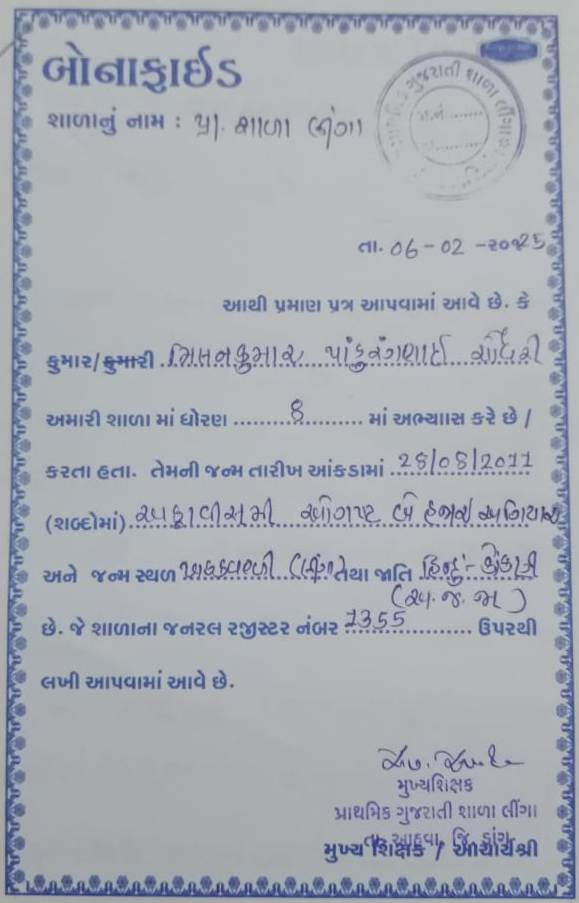 બોનાફાઈડ
ગુજરાતી શાળા લીંગા
શાળાનું નામ : પ્રા. શાળા લીંગા
તા. 06-02-૨૦25
આથી પ્રમાણ પત્ર આપવામાં આવે છે. કે
કુમાર/કુમારી મિલનકુમાર પાંડુરંગભાઈ ચૌધરી
અમારી શાળા માં ધોરણ 8 માં અભ્યાસ કરે છે /
કરતા હતા. તેમની જન્મ તારીખ આંકડામાં 28/08/2011
(શબ્દોમાં) અઠ્ઠાવીસમી ઓગષ્ટ બે હજાર અગિયાર
અને જન્મ સ્થળ લીંગા તથા જાતિ હિન્દુ-
(અ.જ.જા)
છે. જે શાળાના જનરલ રજીસ્ટર નંબર 1355 ઉપરથી
લખી આપવામાં આવે છે.
મુખ્યશિક્ષક
પ્રાથમિક ગુજરાતી શાળા લીંગા
તા. આહવા જિ. ડાંગ
મુખ્ય શિક્ષક / આચાર્યશ્રી